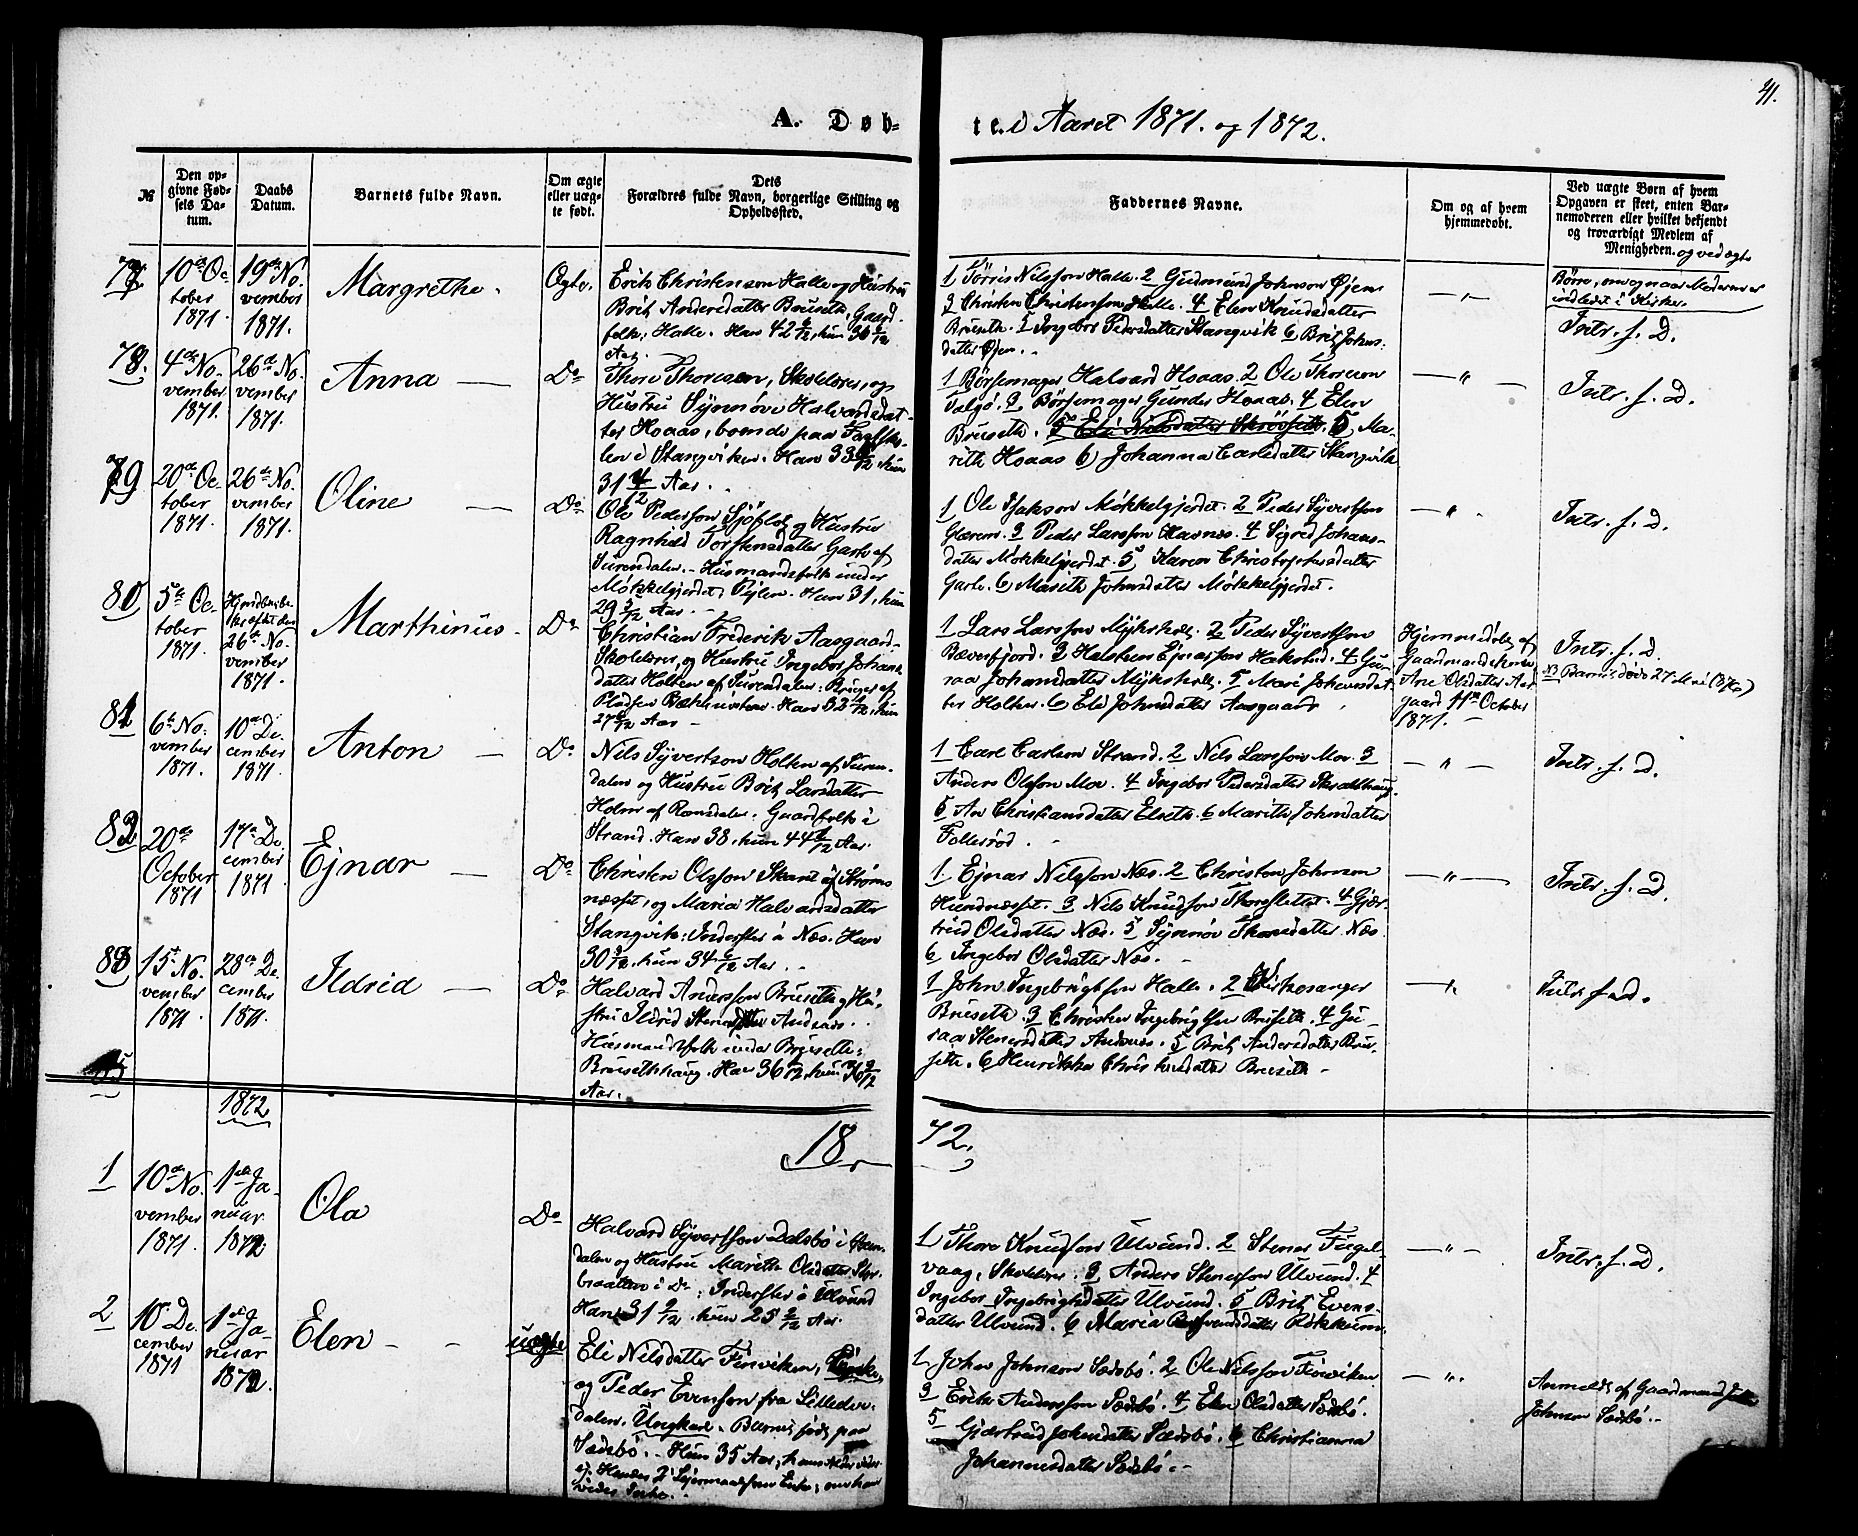 41.
A. Døb-
te i Aaret 1871. og 1872.
№
Den op-
givne Fød-
sels Da-
tum.
Daabs
Datum.
Barnets fulde Navn.
Om ægte
eller uæg-
te født.
Dets
Forældres fulde Navn, borgerlige Stilling og
Opholdssted.
Faddernes Navne.
Om og af hvem
hjemmedøbt.
Ved uægte Børn af hvem
Opgaven er skeet, enten Bar-
nemoderen eller hvilket bekjendt
og troværdigt Medlem af
Menigheden. og ved ægte
Børn, om og naar Moderen er
indledet i Kirken.
77.
10de Oc-
tober
1871.
19de No-
vember
1871.
Margrethe.
Ægte.
Erik Christensen Halle og Hustru
Brit Andersdatter Bruseth, Gaard-
folk, Halle. Han 42 /12, hun 36 /12
Aar.
1 Tørris Nilsson Halle. 2 Gudmund Johnson Øjen
3 Christen Christensson Halle. 4 Elen Knudsdatter
Bruseth. 5 Ingebor Pedersdatter Stangvik 6 Brit Johns-
datter Øjen.
— " —
Intr. s. D.
78.
4de No-
vember
1871.
26de No-
vember
1871.
Anna —
Do
Thore Thoresen, Skolelærer, og
Hustru Synnøve Halvardsdat-
ter Hoaas, boende paa
i Stangviken. Han 33 /12, hun
31 /12 Aar.
1 Børsemager Halvard Hoaas. 2 Ole Thoresen
Talgø. 3 Børsemager Gunder Hoaas. 4 Elen
Bruseth. 5 Eli Nilsdatter 5, Ma-
rith Hoaas 6) Johanna Carlsdatter Stangvik
— " —
Intr. s. D.
79
20de Oc-
tober
1871.
26de No-
vember
1871.
Oline —
Do
Ole Pedersson Sjøflot og Hustru
Ragnhild Torstensdatter Garte af
Surendalen. Husmandsfolk under
Møkkelgjerdet, Han 31, hun
29 /12 Aar. -
1 Ole Møkkelgjerdet. 2 Peder Syvertsen
Glærem. 3 Peder Larsson Havnæs. 4 Sigrid Johans-
datter Møkkelgjerdet. 5 Karen Christophersdatter
Garte. 6 Marith Johnsdatter Møkkelgjerdet.
— " -
Intr. s. D.
80
5te Oc-
tober
1871.
26de No-
vember
1871.
Marthinus -
Do
Christian Frederik Aasgaard-
Skolelærer, og Hustru Ingebor Johans-
datter Holten af Surendalen: Bruger af
Pladsen Han 32 /12, hun
27 /12 Aar -
1 Lars Larsson 2 Peder Syvertsen
Bæverfjord. 3 Halsten Ejnarsson 4 Gu-
raa Johansdatter 5 Mari Johansdat-
ter Holten. 6 Eli Johnsdatter Aasgaard
Hjemmedøbt af
Gaardmandskone
Ane Olsdatter Aas-
gaard 11te October
1871. -
Intr. s. D.
NB Barnet døde 27
81
6te No-
vember
1871.
10de De-
cember
1871.
Anton —
Do
Nils Syvertson Holten af Suren-
dalen og Hustru Brit Larsdatter
Holm af Romsdalen. Gaardfolk i
Strand. Han 38, hun 44 /12 Aar.
1 Carl Carlsen Strand. 2 Nils Larsson Mo. 3
Anders Olsson Moe. 4 Ingebor Pedersdatter
5 An Christiansdatter Elseth. 6 Marith Johnsdatter
Follerød.
— " —
Intr. s. D.
82
20de
October
1871
17de De-
cember
1871
Ejnar —
Do
Christen Olsson Skant af Strøms-
næsset, og Maria Halvardsdatter
Stangvik: Inderster i Næs. Han
30 /12, hun 34 /12 Aar. -
1. Ejnar Nilsson Næs. 2 Christen Johnsen
Hundnæsset. 3 Nils Knudson Thoresletten. 4 Gjær-
trud Olsdatter Næs. 5 Synnøv Næs.
6 Ingebor Olsdatter Næs.
— " —
Intr. s. D.
83
15de No-
vember
1871
28de De-
cember
1871.
Ildrid —
Do
Halvard Andersson Bruseth og Hu-
stru Ildrid Stenersdatter Andsnæs.
Husmandsfolk under Bruseth:
Bruseth haug. Han 36 /12, hun 36 /12
Aar.
1 John Ingebrigtson Halle. 2 Kirkesanger
Bruseth. 3 Christen Ingebrigtsen Bruseth. 4 Gu-
raa Stenersdatter Andsnæs. 5 Brit Andersdatter Bru-
seth. 6 Henrikka Christensdatter Bruseth -
Intr. s. D.
1872
1872.
1
10de No-
vember
1871.
1ste Ja-
nuar
1872
Ola
Do
Halvard Syvertsson Dalsbø i Suren-
dalen og Hustru Marith Olsdatter
i Do: Inderster i Ulvund
Han 31 /12, hun 25 /12 Aar.
1 Thore Knudson Ulvund. 2 Stener Fugel-
vaag, Skolelærer. 3 Anders Stenersson Ulvund. 4
Ingebor Ingebrigtsdatter Ulvund. 5 Brit Evens-
datter Ulvund. 6 Maria Røkkum.
— " —
Intr. s. D.
2
10 De-
cember
1871
1ste Ja-
nuar
1872.
Elen - -
uægte
Eli Nilsdatter Finviken, Pige
og Peder Evenson fra Lilledø-
dalen, Ungkarl. Barnet født paa
Sædsbø. Hun 35 Aar, hans Alder vides
ej. Hendes 2det Lejermaal, som Enke; om hans
vides Intet. -
1 John Johnsen Sædsbø. 2 Ole Nilsson Finviken
3 Erik Andersson Sædsbø. 4 Elen Olsdatter Sædsbø.
5 Gjærtrud Johnsdatter Sædsbø. 6 Christianna
Johannesdatter Sædsbø. -
— " -
Anmeldt af Gaardmand John
Johnsen Sædsbø. -